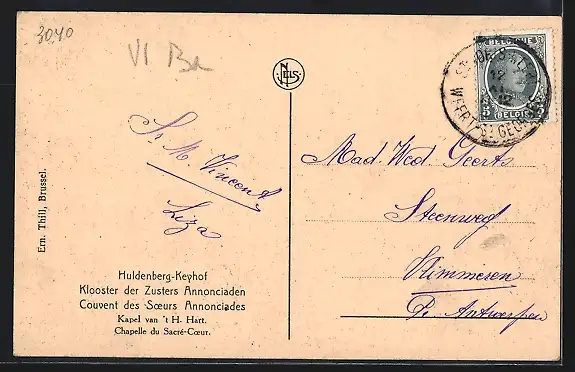 3040
VI Ba
NELS
BELGIQUE
5 5
BELGIË
WEERT-ST-GEORGES
12
Sr. M. Vincent
Liza
Mad. Wed Geerts
Steenweg
Vlimmeren
Pr. Antwerpen
Ern. Thill, Brussel.
Huldenberg-Keyhof
Klooster der Zusters Annonciaden
Couvent des Sœurs Annonciades
Kapel van 't H. Hart.
Chapelle du Sacré-Cœur.